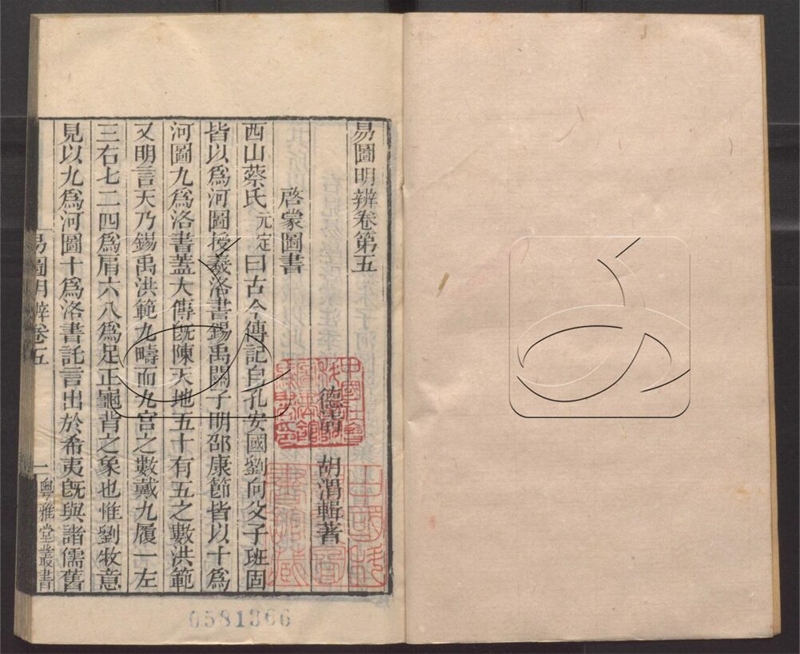 易圖明辨卷第五
德清 胡渭輯著
啓蒙圖書
西山蔡氏元定曰古今傳記自孔安國劉向父子班固
皆以為河圖授羲洛書錫禹關子明邵康節皆以十為
河圖九為洛書蓋大傳旣陳天地五十有五之數洪範
又明言天乃錫禹洪範九疇而九宮之數戴九履一左
三右七二四為肩六八為足正龜背之象也惟劉牧意
見以九為河圖十為洛書託言出於希夷旣與諸儒舊
易圖明辨卷五 一 粵雅堂叢書
0581366